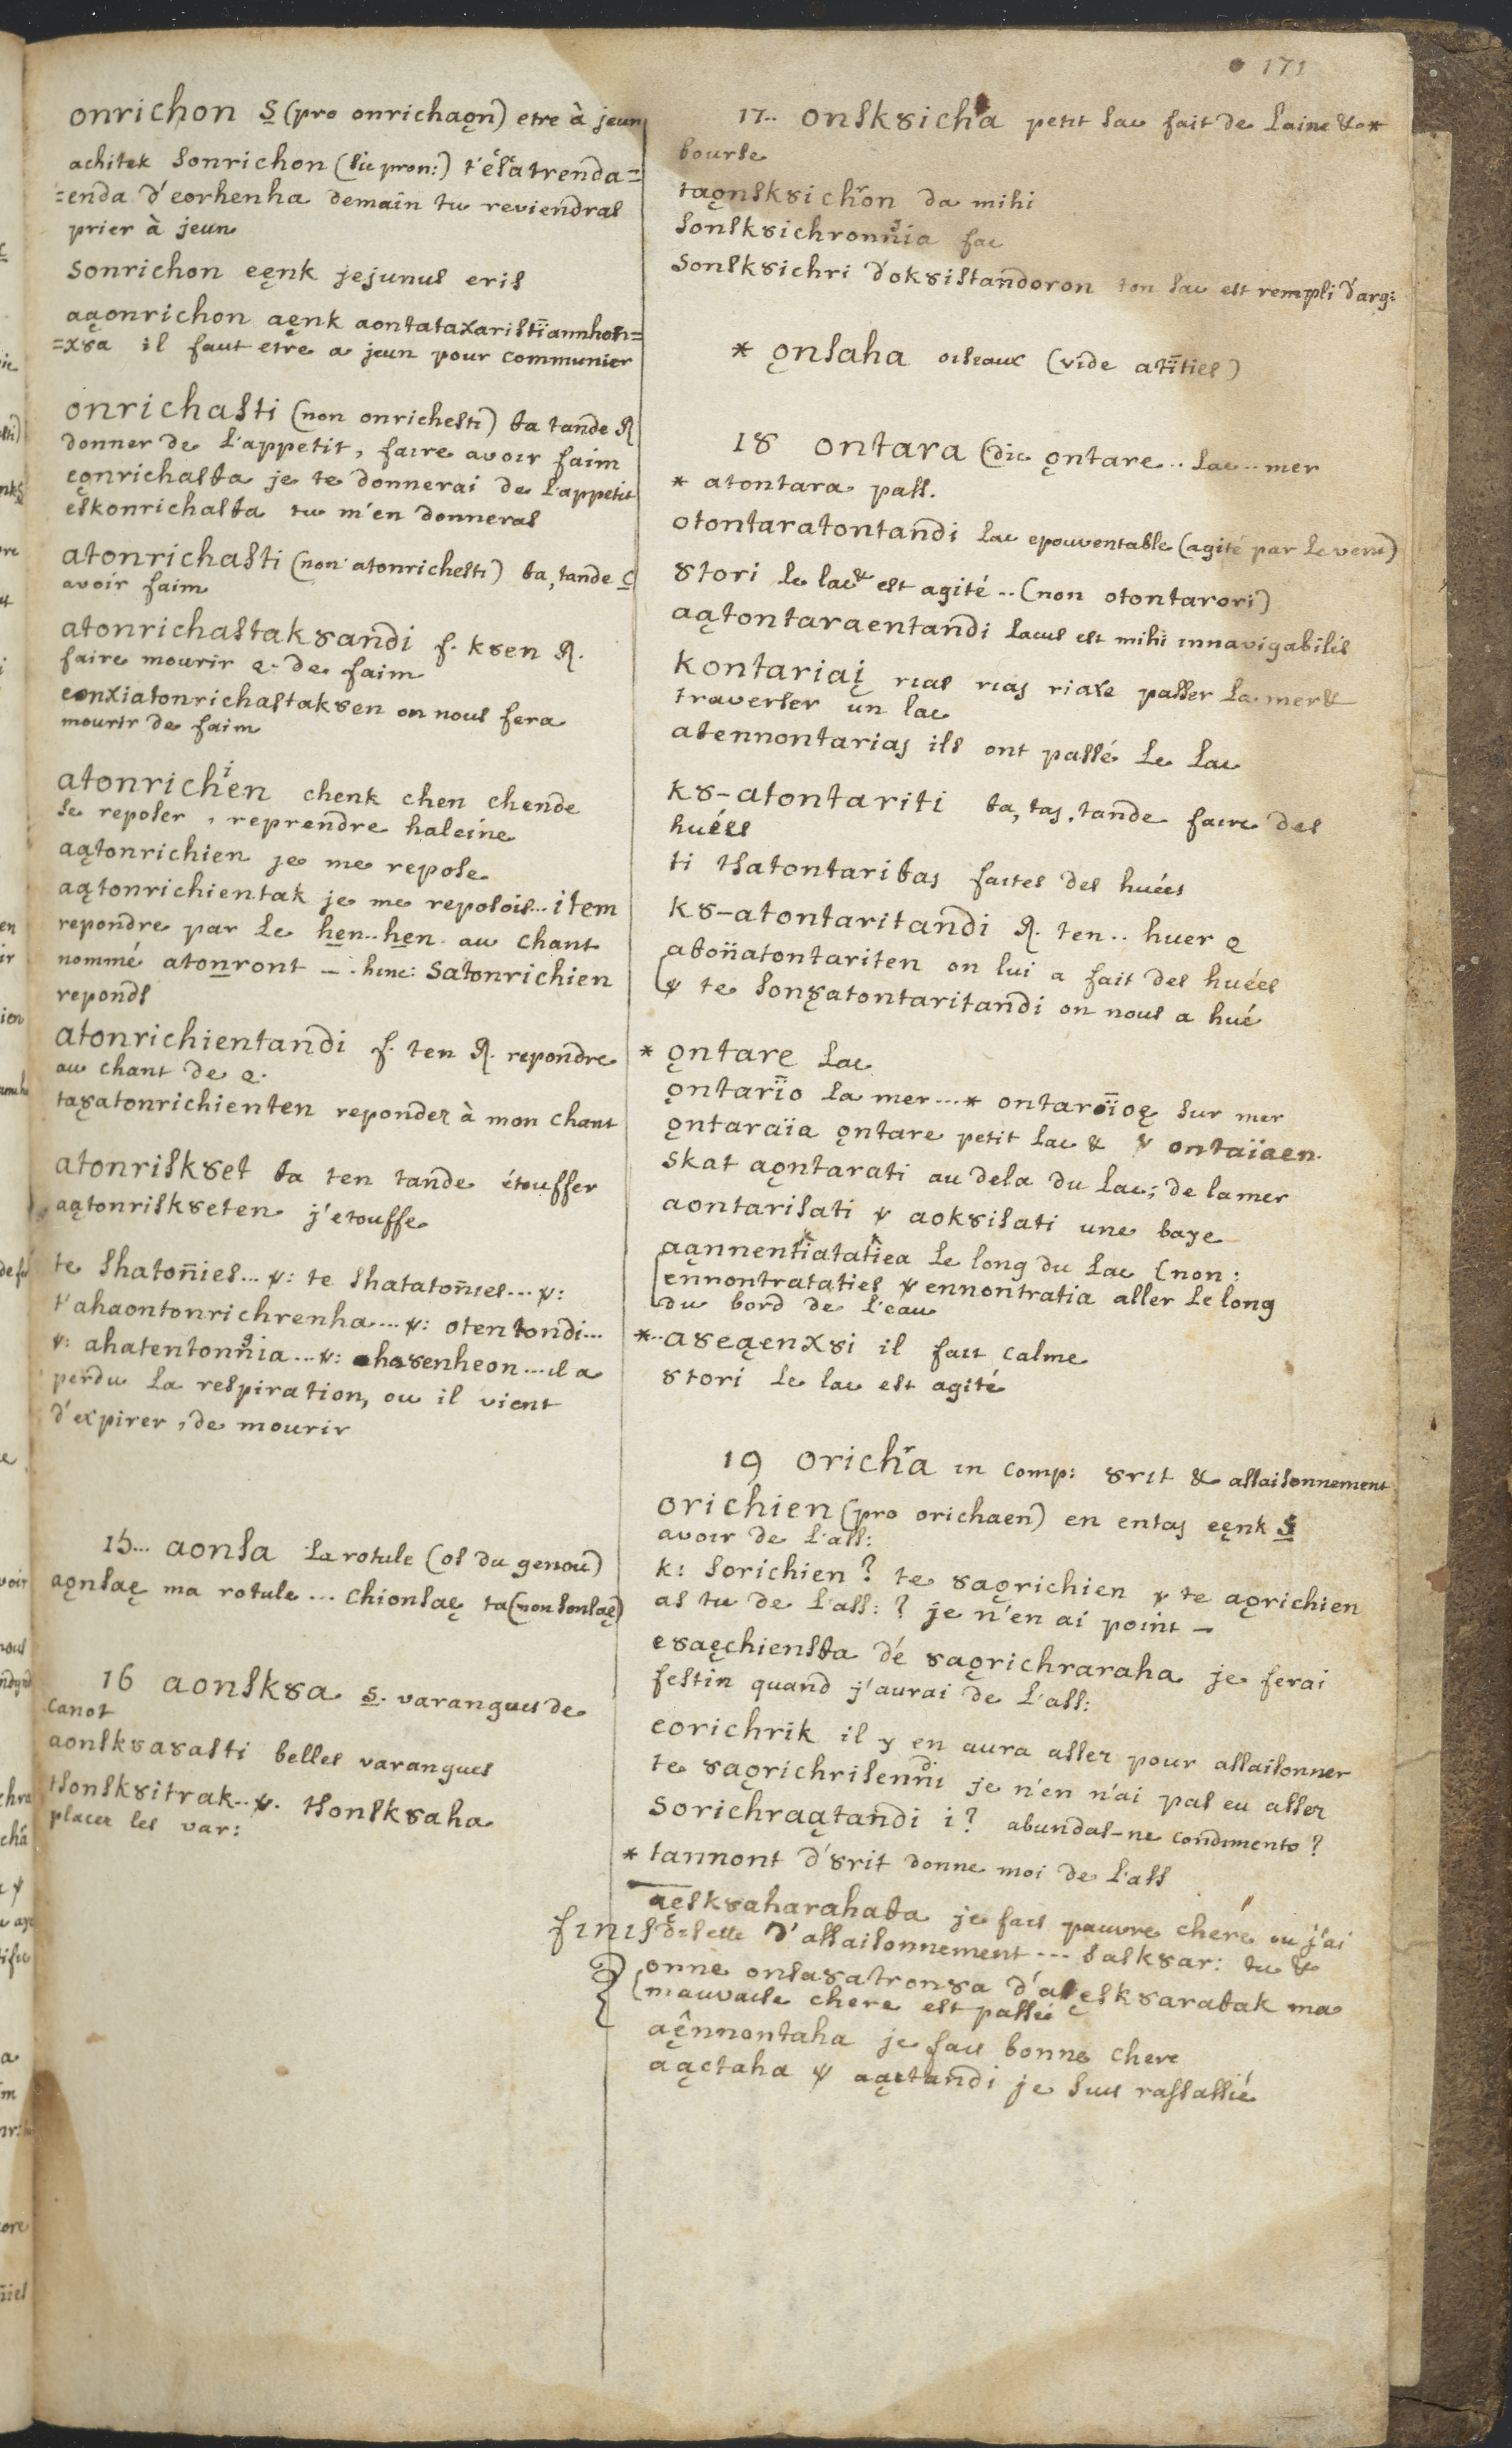 171
onrichon S (pro onrichaǫn) etre à jeun
achitek sonrichon (sic pron:) t'ësatrenda=
=enda d'eorhenha demain tu reviendras
prier à jeun
sonrichon eęnk jejunus eris
aąonrichon aęnk aontataxaristïannhon=
=xȣa il faut etre a jeun pour communier
onrichasti (non onrichesti) ta tande R
donner de l'appetit, faire avoir faim
eǫnrichasta je te donnerai de l'appetit
eskonrichasta tu m'en donneras
atonrichasti (non atonrichesti) ta, tande C
avoir faim
atonrichastakȣandi f. kȣen R.
faire mourir q. de faim
eonxiatonrichastakȣen on nous fera
mourir de faim
atonrichien chenk chen chende
se reposer, reprendre haleine
aątonrichien je me repose
aątonrichientak je me reposois.. item
repondre par le hen..hen au chant
nommé atonront –. hinc: satonrichien
reponds
atonrichientandi f. ten R. repondre
au chant de q.
taȣatonrichienten repondez à mon chant
atonriskȣet ta ten tande étouffer
aątonriskȣeten j'etouffe
te shatoñies... ψ: te shatatoñies... ψ:
t'ahaontonrichrenha.... ψ: otentondi...
ψ: ahatentonnia... ψ: ahaȣenheon... il a
perdu la respiration, ou il vient
d'expirer, de mourir
15... aonsa la rotule (os du genou)
aǫnsaę ma rotule ... chionsaę ta (non sonsaę)
16 aonskȣa S. varangues de
canot
aonskȣaȣasti belles varangues
tsonskȣitrak.. ψ. tsonskȣaha
placer les var:
17.. onskȣichra petit sac fait de laine &*
bourse
taǫnskȣichron da mihi
sonskȣichronnia fac
sonskȣichri d'okȣistandoron ton sac est rempli d'arg:
* ǫnsaha oiseaux (vide atïties)
18 ontara (dic ǫntare.. lac.. mer
* atontara pass.
otontaratontandi lac epouventable (agité par le vent)
ȣtori le lac & est agité.. (non otontarori)
aątontaraentandi lacus est mihi innavigabilis
kontariaį rias rias riaxe passer la mer &
traverser un lac
atennontarias ils ont passé le lac
kȣ-atontariti ta, tas, tande faire des
huées
ti tsatontaritas faites des huées
kȣ-atontaritandi R. ten.. huer q
atoñatontariten on lui a fait des huées
ψ te sonȣatontaritandi on nous a hué
* ǫntare lac
ǫntarïo la mer...* ontarïoę sur mer
ǫntaraïa ǫntare petit lac & ψ ontaïaen.
skat aǫntarati au dela du lac; de la mer
aontarisati ψ aokȣisati une baye
aąnnentiatatiea le long du lac (non:
ennontrataties ψ ennontratia aller le long
du bord de l'eau
*..aȣeąenxȣi il fait calme
ȣtori le lac est agité
19 orichra in comp: ȣrit & assaisonnement
orichien (pro orichaen) en entas eęnk S
avoir de l'ass:
k: sorichien? te ȣaǫrichien ψ te aǫrichien
as tu de l'ass:? je n'en ai point –
eȣaęchiensta dé ȣaǫrichraraha je ferai
festin quand j'aurai de l'ass:
eorichrik il y en aura assez pour assaisonner
te ȣaǫrichrisendi je n'en n'ai pas eu assez
sorichraątandi i? abundas-ne condimento?
* tannont d'ȣrit donne moi de l'ass
aęskȣaharahata je fais pauvre chere ou j'ai
finis
disette d'assaisonnement... saskȣar: tu &
onne onsaȣatronȣa d'aęskȣaratak ma
mauvaise chere est passée
aęnnontaha je fais bonne chere
aąctaha ψ aąctandi je suis rassassié